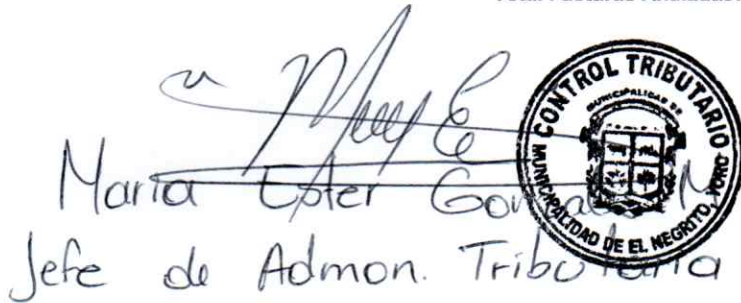 Maria Ester Gonzales M
Jefe de Admon. Tributaria
CONTROL TRIBUTARIO
MUNICIPALIDAD DE
MUNICIPALIDAD DE EL NEGRITO, YORO